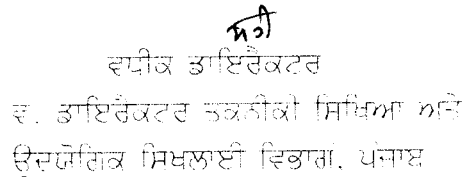 ਸਹੀ
ਵਧੀਕ ਡਾਇਰੈਕਟਰ
ਵ. ਡਾਇਰੈਕਟਰ ਤਕਨੀਕੀ ਸਿਖਿਆ ਅਤੇ
ਉਦਯੋਗਿਕ ਸਿਖਲਾਈ ਵਿਭਾਗ, ਪੰਜਾਬ